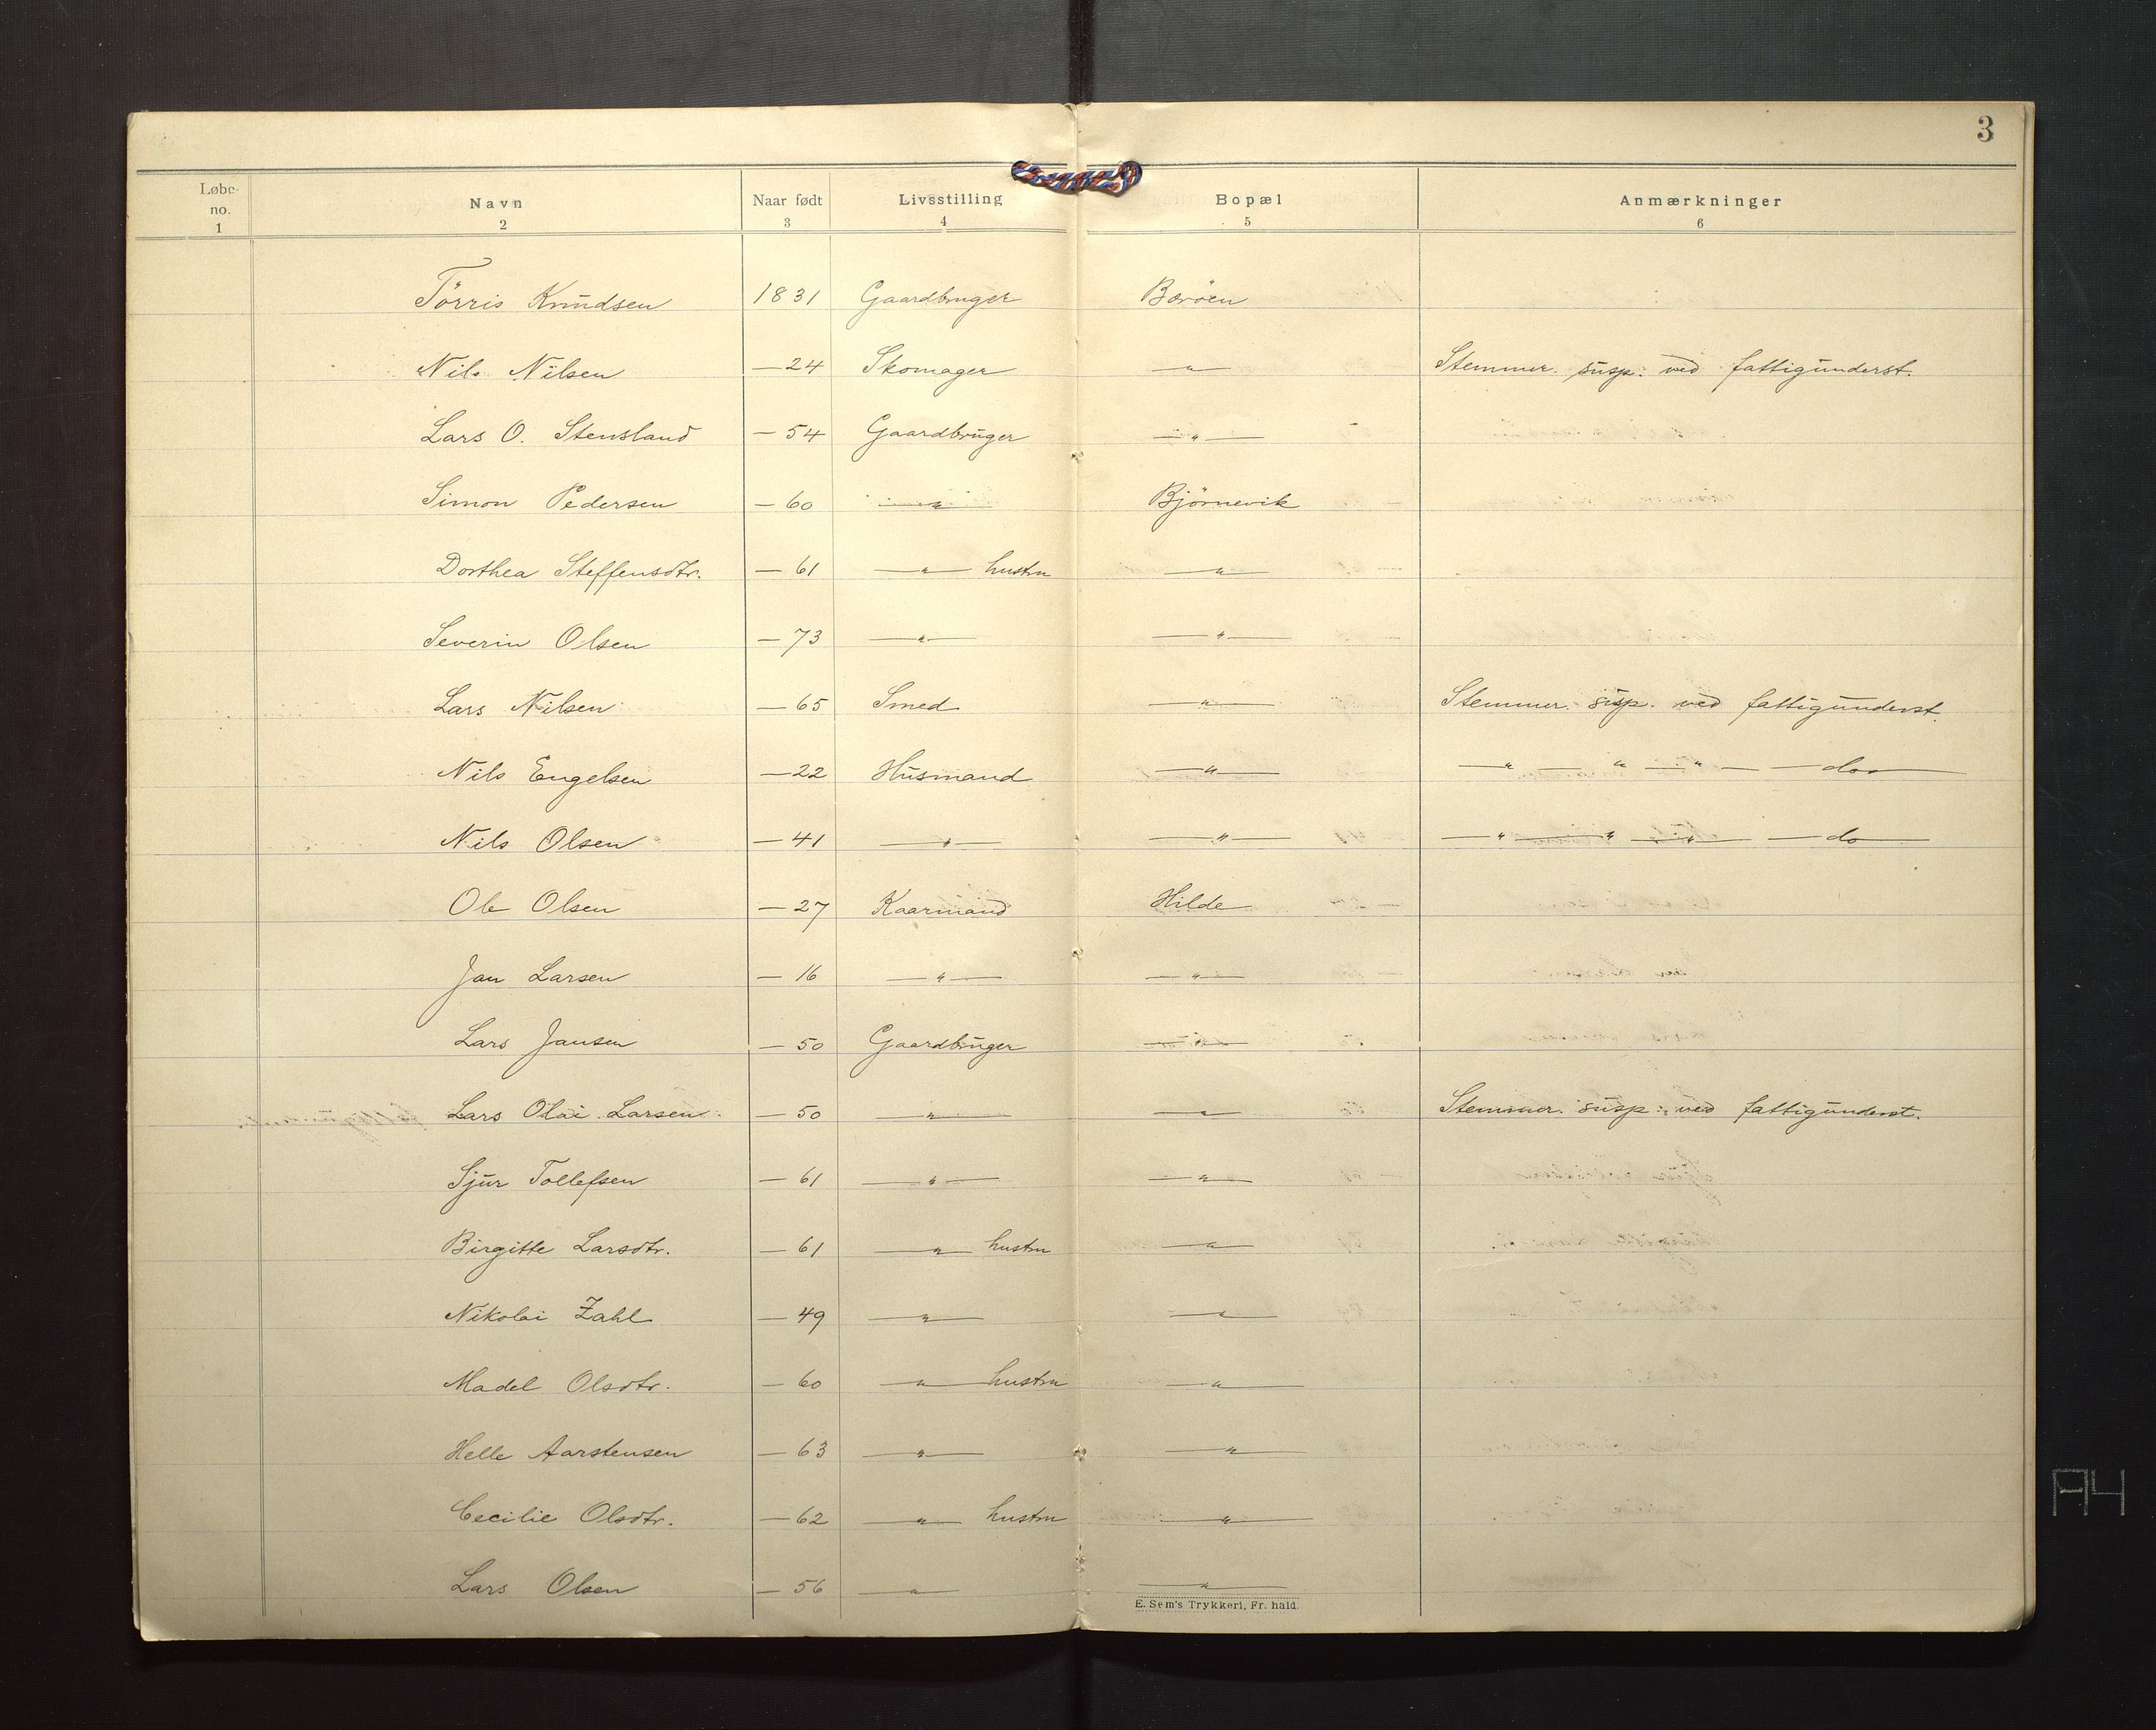 3
Løbe-no. Navn Naar født Livsstilling Bopæl Anmærkninger
1 2 3 4 5 6
Törris Knudsen 1831 Gaardbruger Boröen
Nils Nilsen — 24 Skomager —"— Stemmer. susp: ved fattigunderst.
Lars O. Stensland — 54 Gaardbruger —"—
Simon Pedersen — 60 —"— Bjørnevik
Dorthea Steffensdtr. — 61 —"— hustru —"—
Severin Olsen — 73 —"— —"—
Lars Nilsen — 65 Smed —"— Stemmer. susp. ved fattigunderst.
Nils Engelsen — 22 Husmand —"— —"— "—"— —do—
Nils Olsen — 41 —"— —"— —"—"—"— —do—
Ole Olsen — 27 Kaarmand Hilde
Jan Larsen — 16 —"— —"—
Lars Jansen — 50 Gaardbruger —"—
Lars Olai Larsen — 50 —"— —"— Stemmer. susp: ved fattigunderst.
Sjur Tollefsen — 61 —"— —"—
Birgitte Larsdtr. — 61 —"— hustru —"—
Nikolai Zahl — 49 —"— —"—
Madel Olsdtr. — 60 —"— hustru —"—
Helle Aarstensen — 63 —"— —"—
Cecilie Olsdtr. — 62 —"— hustru —"—
Lars Olsen — 56 —"— —"—
E. Sem's Trykkeri, Fr. hald.
A4